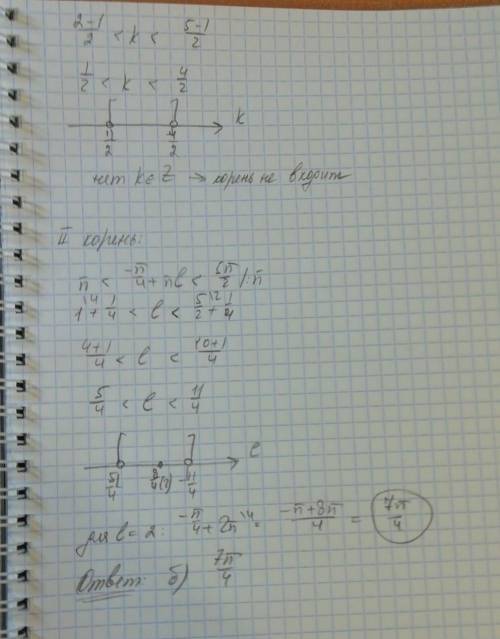 (2-1)/2 < k < (5-1)/2
1/2 < k < 4/2
k
1/2 4/2
нет k∈Z → корень не входит
II корень:
π < -π/4 + πl < 5π/2 |:π
1\4 + 1/4 < l < 5/2\2 + 1/4
(4+1)/4 < l < (10+1)/4
5/4 < l < 11/4
l
5/4 8/4(2) 11/4
для l=2: -π/4 + 2π\4 = (-π+8π)/4 = 7π/4
Ответ: б) 7π/4